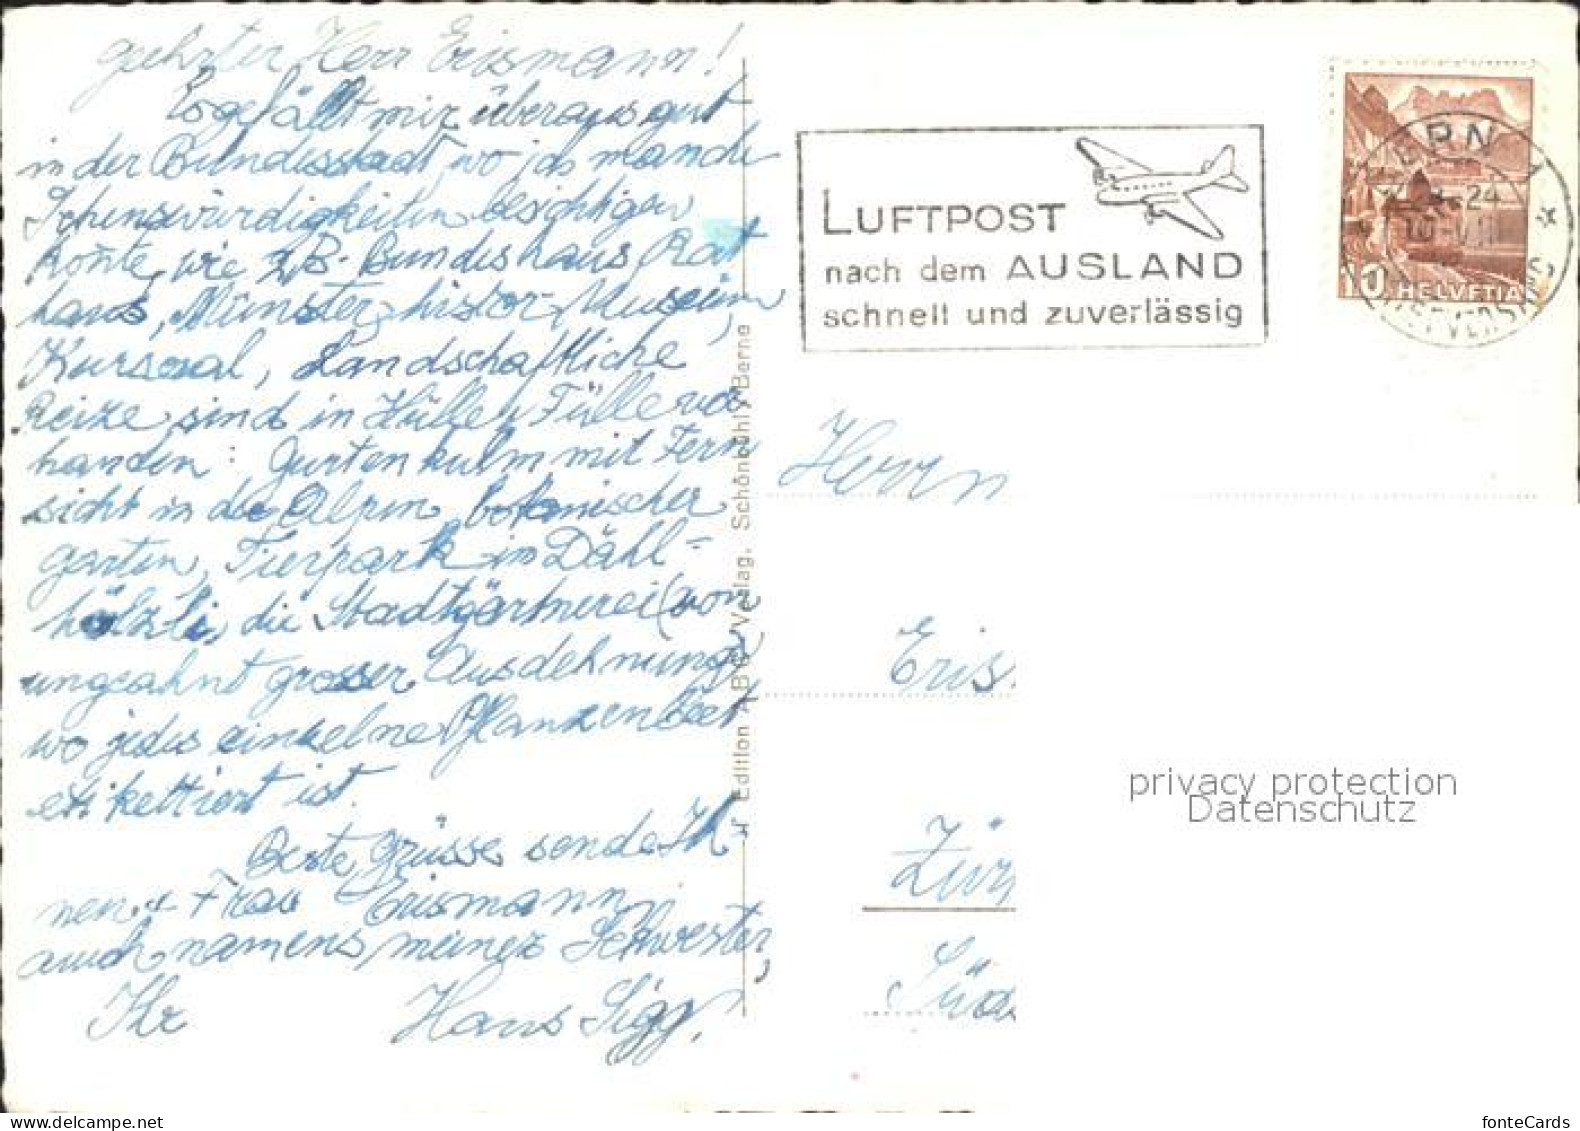 geehrter Herr Erismann!
Es gefällt mir überaus gut
in der Bundesstadt, wo ich manche
Sehenswürdigkeiten besichtigen
konnte, wie z.B. Bundeshaus, Rat
haus, Münster, histor. Museum,
Kursaal, Landschaftliche
Reize sind in Hülle u. Fülle vor
handen: Gurtenkulm mit Fern
sicht in die Alpen, botanischer
garten, Tierpark im Dähl=
hölzli, die Stadtgärtnerei (von
ungeahnt grosser Ausdehnung)
wo jedes einzelne Pflanzenbeet
etikettiert ist.
Beste Grüsse sende Ih-
nen + Frau Erismann,
auch namens meiner Schwester,
Ihr Hans Sigg.
Edition A B C Verlag, Schönbühl / Berne
LUFTPOST
nach dem AUSLAND
schnell und zuverlässig
BERN 1
-24
10.VIII
BRIEFVERSAND
10 HELVETIA
Herrn
Eris
Zür
Süd
privacy protection
Datenschutz
fonteCards